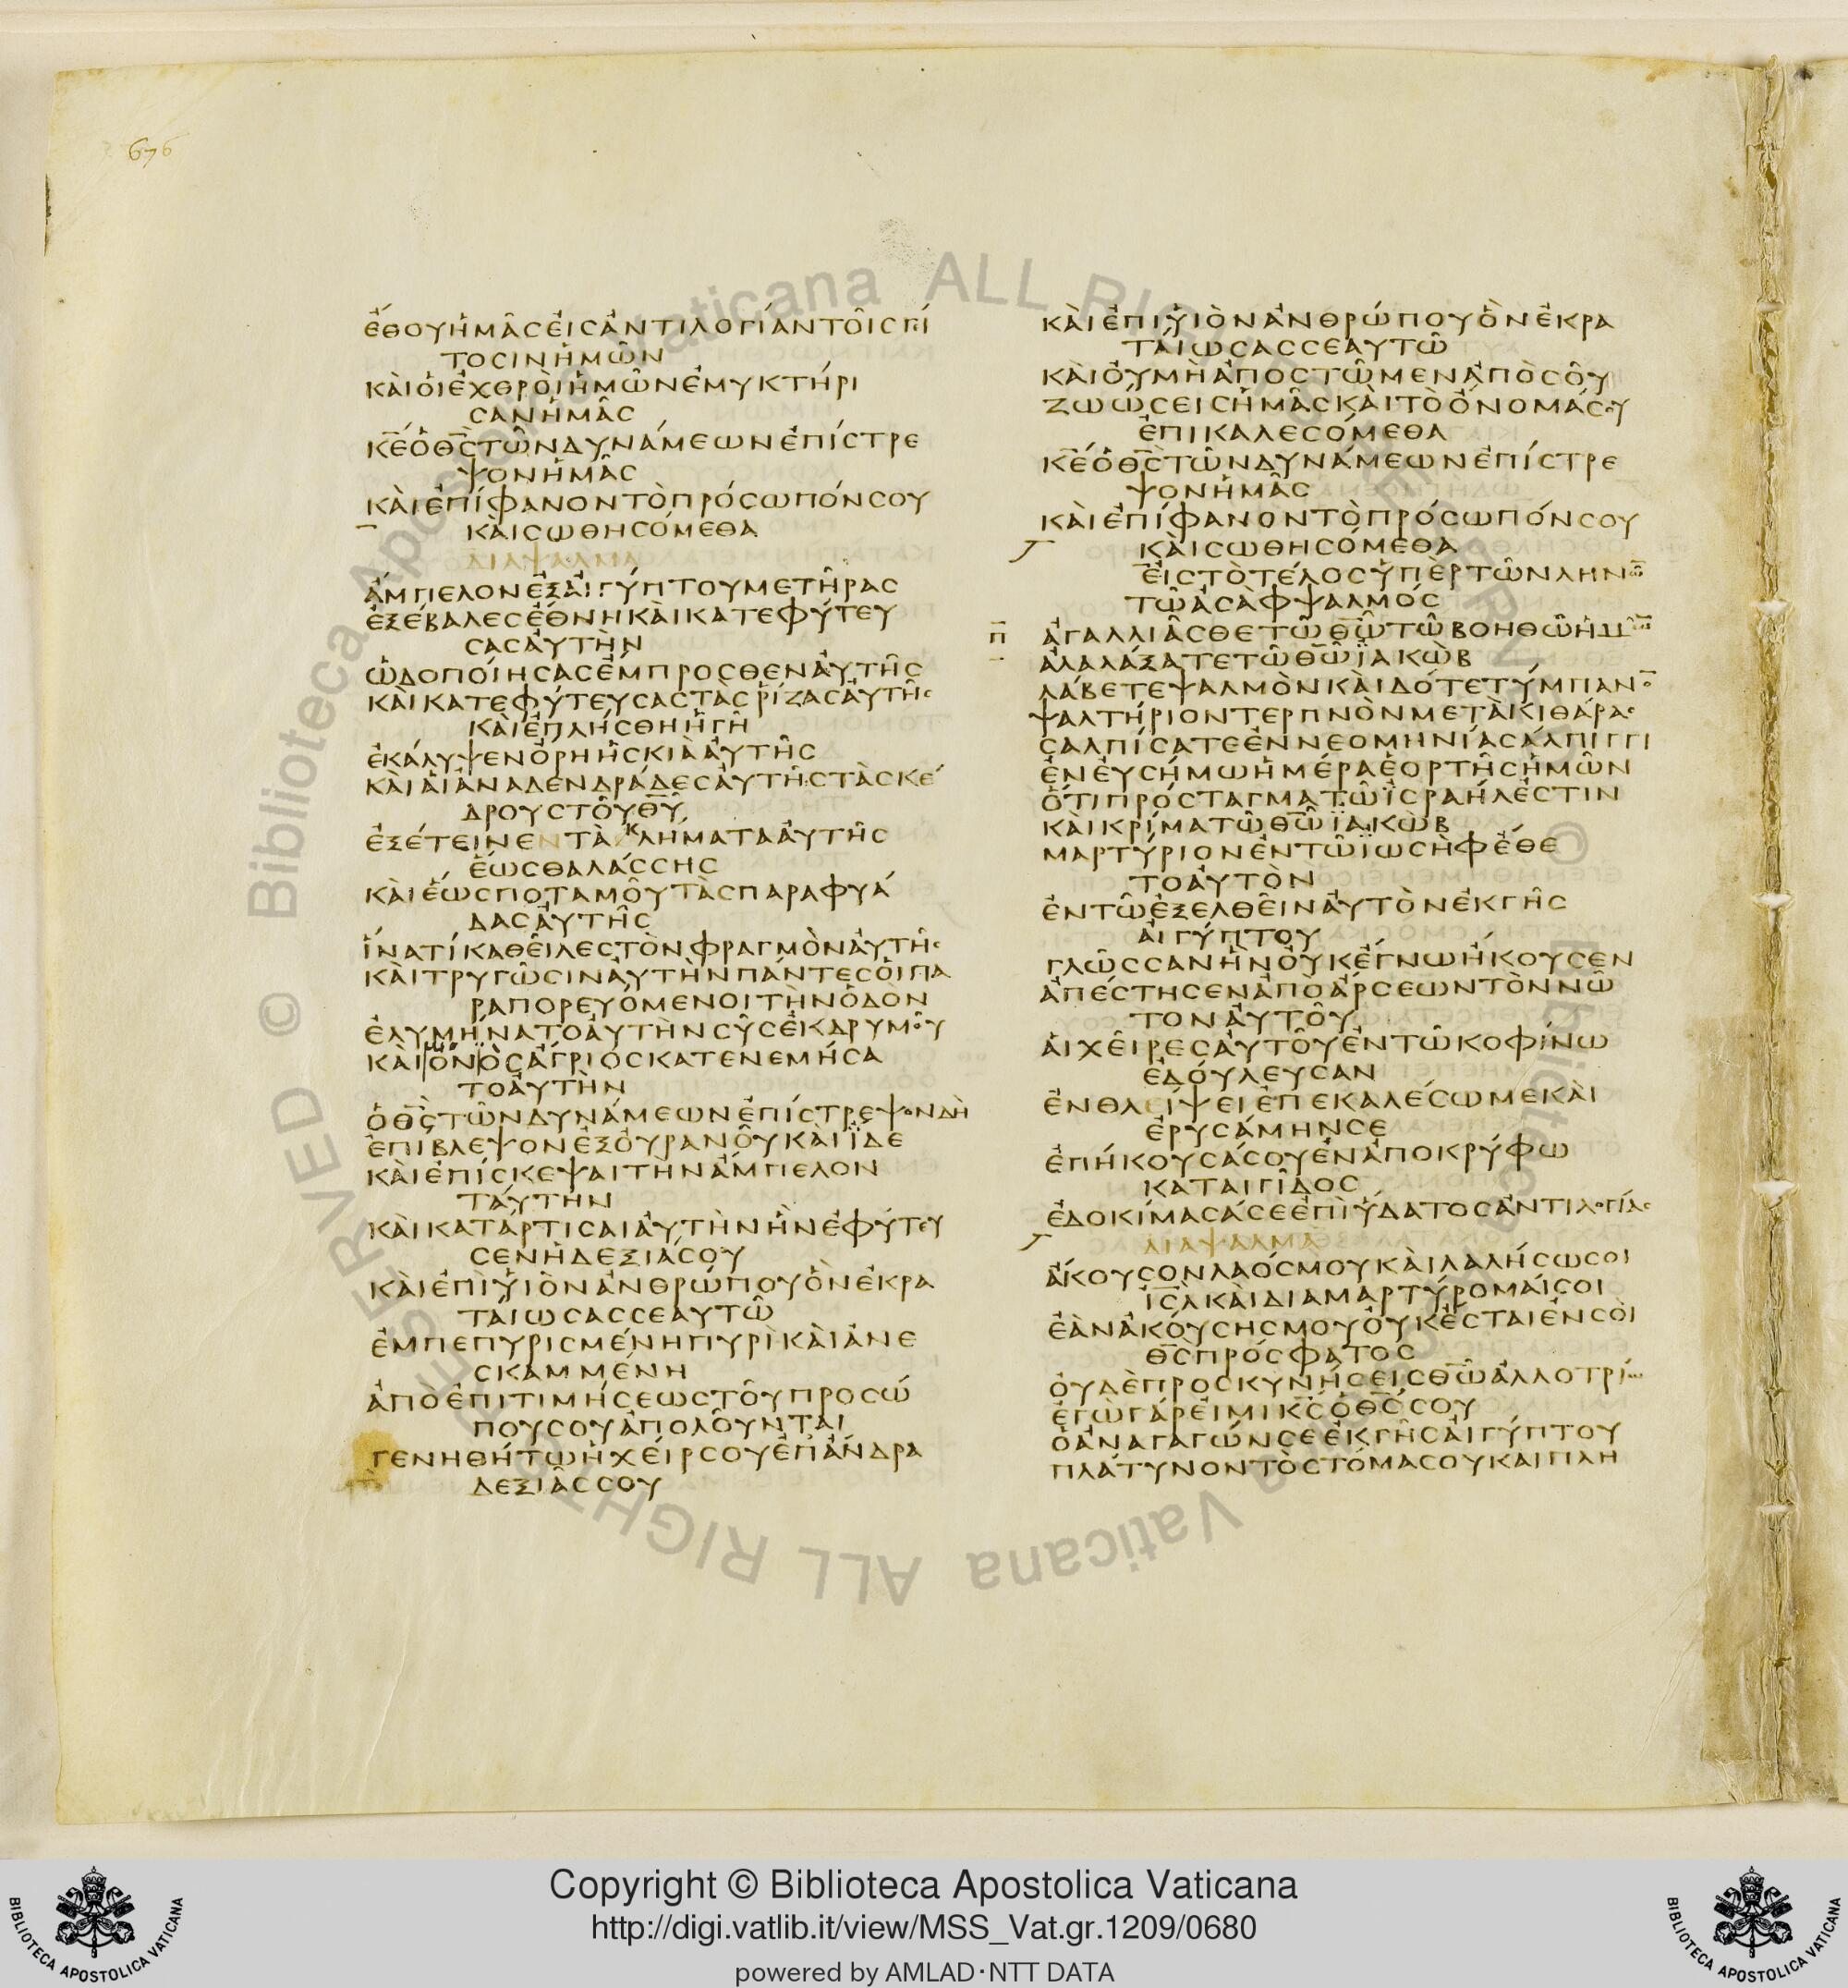 676
ἔθου ἡμᾶς εἰς ἀντιλογίαν τοῖς γεί
τοσιν ἡμῶν
καὶ οἱ ἐχθροὶ ἡμῶν ἐμυκτήρι
σαν ἡμᾶς
κ̅ε̅ ὁ θ̅ς̅ τῶν δυνάμεων ἐπίστρε
ψον ἡμᾶς
καὶ ἐπίφανον τὸ πρόσωπόν σου
καὶ σωθησόμεθα
διάψαλμα
ἄμπελον ἐξ αἰγύπτου μετῆρας
ἐξέβαλες ἔθνη καὶ κατεφύτευ
σας αὐτὴν
ὡδοποίησας ἔμπροσθεν αὐτῆς
καὶ κατεφύτευσας τὰς ῥίζας αὐτῆς
καὶ ἐπλήσθη ἡ γῆ
ἐκάλυψεν ὄρη ἡ σκιὰ αὐτῆς
καὶ αἱ ἀναδενδράδες αὐτῆς τὰς κέ
δρους τοῦ θ̅υ̅
ἐξέτεινεν τὰ κλήματα αὐτῆς
ἕως θαλάσσης
καὶ ἕως ποταμοῦ τὰς παραφυά
δας αὐτῆς
ἵνα τί καθεῖλες τὸν φραγμὸν αὐτῆς
καὶ τρυγῶσιν αὐτὴν πάντες οἱ πα
ραπορευόμενοι τὴν ὁδὸν
ἐλυμήνατο αὐτὴν σῦς ἐκ δρυμοῦ
καὶ ὄνος ἄγριος κατενεμήσα
το αὐτὴν
ὁ θ̅ς̅ τῶν δυνάμεων ἐπίστρεψον δὴ
ἐπίβλεψον ἐξ οὐρανοῦ καὶ ἴδε
καὶ ἐπίσκεψαι τὴν ἄμπελον
ταύτην
καὶ κατάρτισαι αὐτὴν ἣν ἐφύτευ
σεν ἡ δεξιά σου
καὶ ἐπὶ υἱὸν ἀνθρώπου ὃν ἐκρα
ταίωσας σεαυτῶ
ἐμπεπυρισμένη πυρὶ καὶ ἀνε
σκαμμένη
ἀπὸ ἐπιτιμήσεως τοῦ προσώ
που σου ἀπολοῦνται
γενηθήτω ἡ χείρ σου ἐπ ἄνδρα
δεξιᾶς σου
καὶ ἐπὶ υἱὸν ἀνθρώπου ὃν ἐκρα
ταίωσας σεαυτῶ
καὶ οὐ μὴ ἀποστῶμεν ἀπὸ σοῦ
ζωώσεις ἡμᾶς καὶ τὸ ὄνομά σου
ἐπικαλεσόμεθα
κ̅ε̅ ὁ θ̅ς̅ τῶν δυνάμεων ἐπίστρε
ψον ἡμᾶς
καὶ ἐπίφανον τὸ πρόσωπόν σου
καὶ σωθησόμεθα
εἰς τὸ τέλος ὑπὲρ τῶν ληνῶ̅
τῶ ἀσὰφ ψαλμός
π̅ ἀγαλλιᾶσθε τῶ θ̅ω̅ τῶ βοηθῶ ἡμῶ̅
ἀλαλάξατε τῶ θ̅ω̅ ϊακὼβ
λάβετε ψαλμὸν καὶ δότε τύμπανο̅
ψαλτήριον τερπνὸν μετὰ κιθάρας
σαλπίσατε ἐν νεομηνία σάλπιγγι
ἐν εὐσήμω ἡμέρα ἑορτῆς ἡμῶν
ὅτι πρόσταγμα τῶ ϊσραήλ ἐστιν
καὶ κρίμα τῶ θ̅ω̅ ϊακὼβ
μαρτύριον ἐν τῶ ϊωσὴφ ἔθε
το αὐτὸν
ἐν τῶ ἐξελθεῖν αὐτὸν ἐκ γῆς
αἰγύπτου
γλῶσσαν ἣν οὐκ ἔγνω ἤκουσεν
ἀπέστησεν ἀπὸ ἄρσεων τὸν νῶ
τον αὐτοῦ
αἱ χεῖρες αὐτοῦ ἐν τῶ κοφίνω
ἐδούλευσαν
ἐν θλείψει ἐπεκαλέσω με καὶ
ἐρυσάμην σε
ἐπήκουσά σου ἐν ἀποκρύφω
καταιγίδος
ἐδοκίμασά σε ἐπὶ ὕδατος ἀντιλογίας
διάψαλμα
ἄκουσον λαός μου καὶ λαλήσω σοι
ι̅σ̅λ̅ καὶ διαμαρτύρομαί σοι
ἐὰν ἀκούσης μου οὐκ ἔσται ἐν σοὶ
θ̅ς̅ πρόσφατος
οὐδὲ προσκυνήσεις θ̅ω̅ ἀλλοτρίω
ἐγὼ γάρ εἰμι κ̅ς̅ ὁ θ̅ς̅ σου
ὁ ἀναγαγών σε ἐκ γῆς αἰγύπτου
πλάτυνον τὸ στόμα σου καὶ πλη
Copyright © Biblioteca Apostolica Vaticana
http://digi.vatlib.it/view/MSS_Vat.gr.1209/0680
powered by AMLAD·NTT DATA
BIBLIOTECA APOSTOLICA VATICANA
BIBLIOTECA APOSTOLICA VATICANA